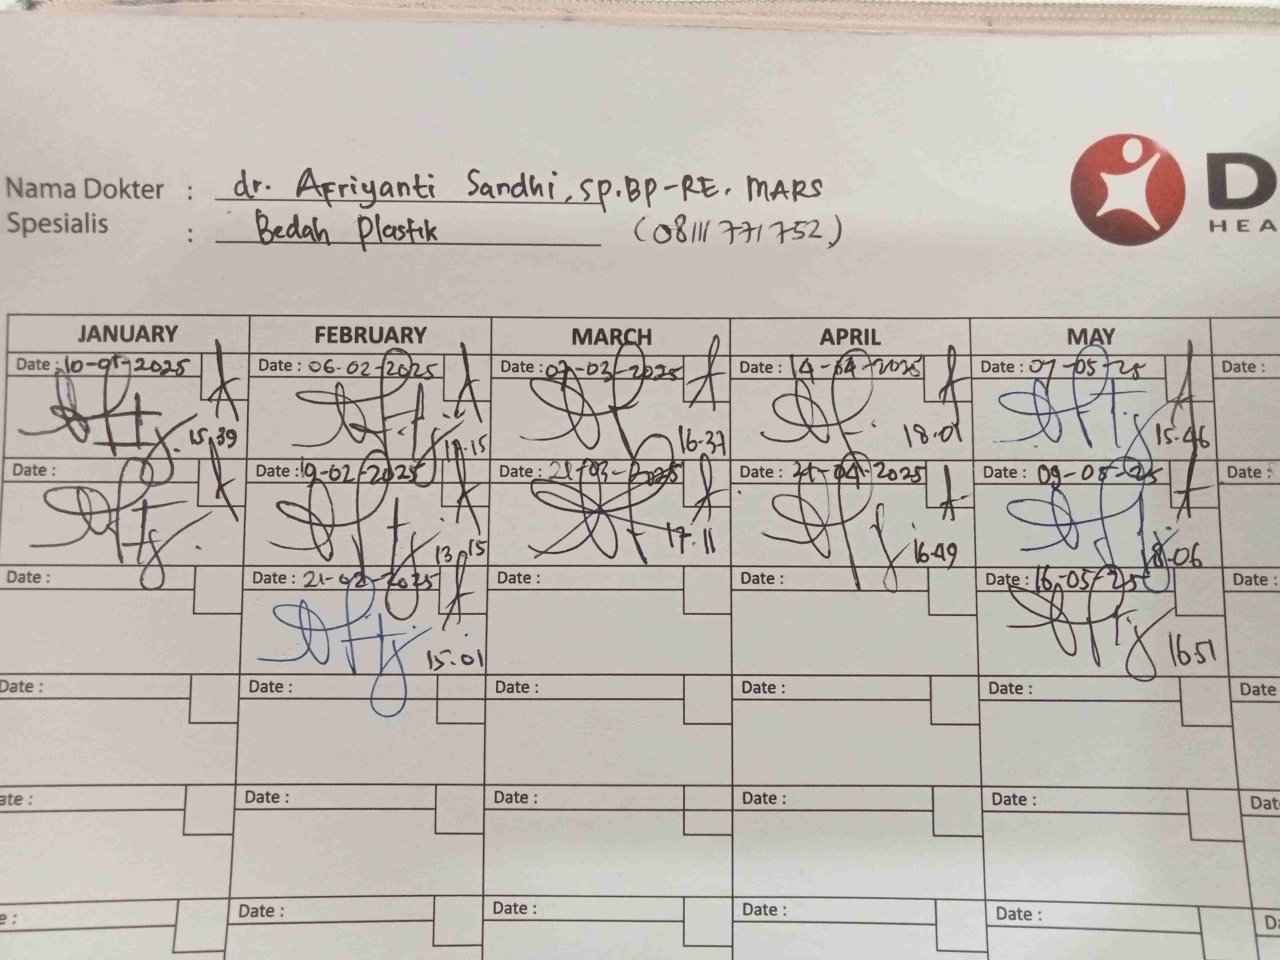 Nama Dokter : dr. Afriyanti Sandhi, SP.BP-RE. MARS
Spesialis : Bedah Plastik (08111771752)
D
HEA
JANUARY FEBRUARY MARCH APRIL MAY
Date : 10-01-2025 Date : 06-02-2025 Date : 07-03-2025 Date : 14-04-2025 Date : 07-05-25 Date :
15.39 17.15 16.37 18.01 15.46
Date : Date : 19-02-2025 Date : 21-03-2025 Date : 21-04-2025 Date : 09-05-25 Date :
13.15 17.11 16.49 18.06
Date : Date : 21-02-2025 Date : Date : Date : 16-05-25 Date :
15.01 1651
Date : Date : Date : Date : Date : Date
ate : Date : Date : Date : Date : Dat
e : Date : Date : Date : Date : Da